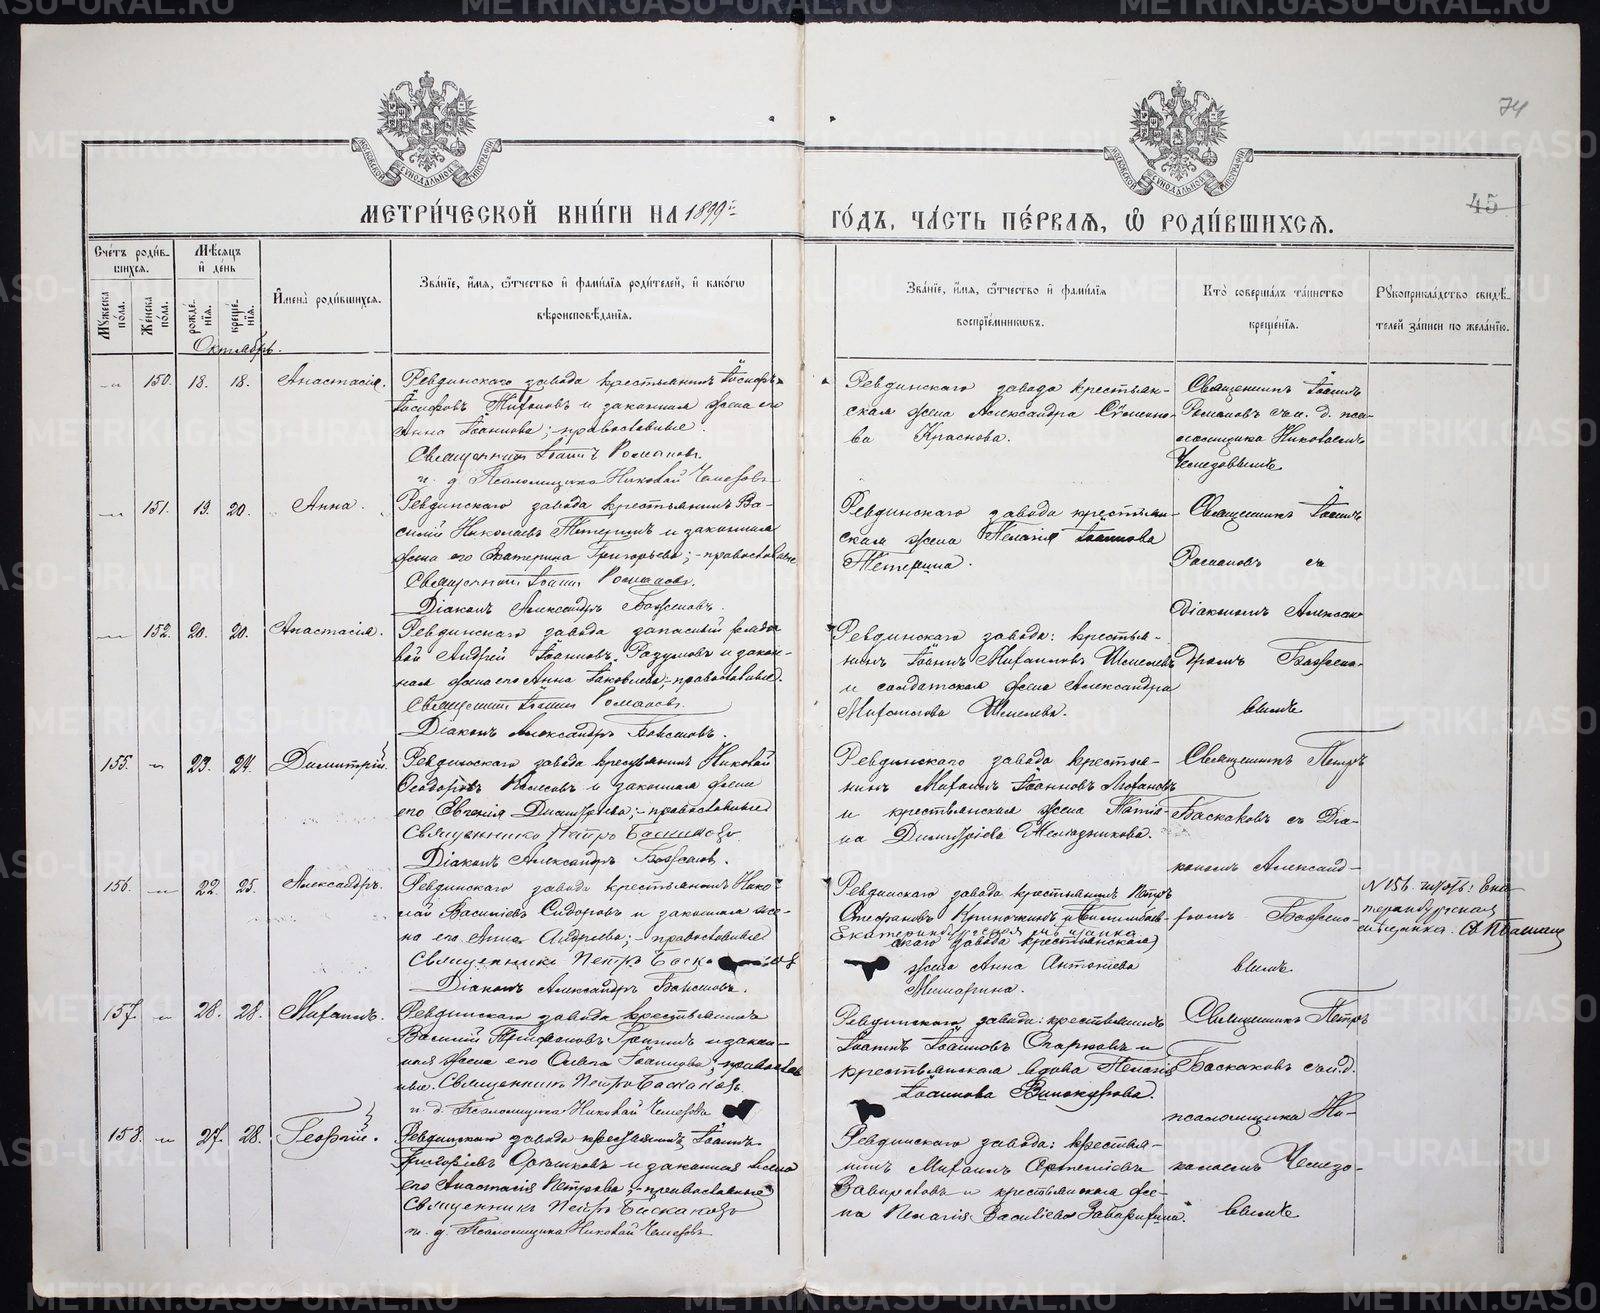 74
45
МЕТРИ́ЧЕСКОЙ КНИ́ГИ НА 1899й
ГО́ДЪ, ЧА́СТЬ ПЕ́РВАЯ, Ѽ РОДИ́ВШИХСЯ.
Сче́тъ роди́в-
шихся.
Мꙋ́жеска по́ла.
Же́нска по́ла.
Мѣ́сяцъ
и́ де́нь
рожде́-
нїя.
креще́-
нїя.
И҆мена̀ роди́вшихся.
Зва́нїе, и҆́мя, ѻ҆́тчество и҆ фами́лїя роди́телей, и҆ како́гѡ
вѣроисповѣ́данїя.
Зва́нїе, и҆́мя, ѻ҆́тчество и҆ фами́лїя
воспрїе́мниковъ.
Кто̀ соверша́лъ та́инство
креще́нїя.
Рꙋкоприкла́дство свидѣ́-
телей за́писи по жела́нїю.
Октябрь.
150. 18. 18. Анастасія.
Ревдинскаго завода крестьянинъ Іосифъ
Іосифовъ и законная жена его
Анна Іоаннова; православные.
Священникъ Іоаннъ Романовъ.
и. д. Псаломщика Николай Чемезовъ
Ревдинскаго завода крестьян-
ская жена Александра
ва Краснова.
Священникъ Іоаннъ
Романовъ съ и. д. пса-
ломщика Николаемъ
Чемезовымъ
151. 19. 20. Анна.
Ревдинскаго завода крестьянинъ Ва-
силій Николаевъ Тетеринъ и законная
жена его Екатерина Григорьева; - православные
Священникъ Іоаннъ Романовъ.
Діаконъ Александръ Баженовъ.
Ревдинскаго завода крестьян-
ская жена Пелагія Іоаннова
Тетерина.
Священникъ Іоаннъ
Романовъ съ
Діакономъ Алексан-
152. 20. 20. Анастасія.
Ревдинскаго завода запасный рядо-
вой Андрей Іоанновъ Разумовъ и закон-
ная жена его Анна Іаковлева; - православные.
Священникъ Іоаннъ Романовъ.
Діаконъ Александръ Баженовъ.
Ревдинскаго завода: крестья-
нинъ Іоаннъ Михаиловъ Шмелевъ
и солдатская жена Александра
Михаилова Шмелева.
дромъ Бажено-
вымъ
155. 23. 24. Димитрій.
Ревдинскаго завода крестьянинъ Николай
Ѳеодоровъ и законная жена
его Евгенія Димитріева; - православные
Священникъ Петръ Баскаковъ
Діаконъ Александръ Баженовъ.
Ревдинскаго завода крестья-
нинъ Михаилъ Іоанновъ
и крестьянская жена Татіа-
на Димитріева
Священникъ Петръ
Баскаковъ съ Діа-
кономъ Александ-
156. 22. 25. Александръ.
Ревдинскаго завода крестьянинъ Нико-
лай Василіевъ Сидоровъ и законная же-
на его Анна Андреева; - православные
Священникъ Петръ Баска
Діаконъ Александръ Баженовъ.
Ревдинскаго завода крестьянинъ Петръ
Стефановъ и Билимбаев-
Екатеринбургская мѣщанка
скаго завода крестьянская
жена Анна Антоніева
Мишарина.
ромъ Бажено-
вымъ
N 156. Ека-
теринбургская
мѣщанка.
157. 28. 28. Михаилъ.
Ревдинскаго завода крестьянинъ
Василій Трифоновъ и закон-
ная жена его Іоаннова; - православ-
ные. Священникъ Петръ Баскаковъ
и. д. Псаломщика Николай Чемезовъ
Ревдинскаго завода: крестьянинъ
Іоаннъ Іоанновъ и
крестьянская вдова Пелагія
Іоаннова Винокурова.
Священникъ Петръ
Баскаковъ съ и. д.
псаломщика Ни-
158. 27. 28. Георгій.
Ревдинскаго завода крестьянинъ Іоаннъ
Григоріевъ и законная жена
его Анастасія Петрова; - православные
Священникъ Петръ Баскаковъ
и. д. Псаломщика Николай Чемезовъ
Ревдинскаго завода: крестья-
нинъ Михаилъ Артеміевъ
и крестьянская же-
на Пелагія Василіева
колаемъ Чемезо-
вымъ
METRIKI.GASO-URAL.RU